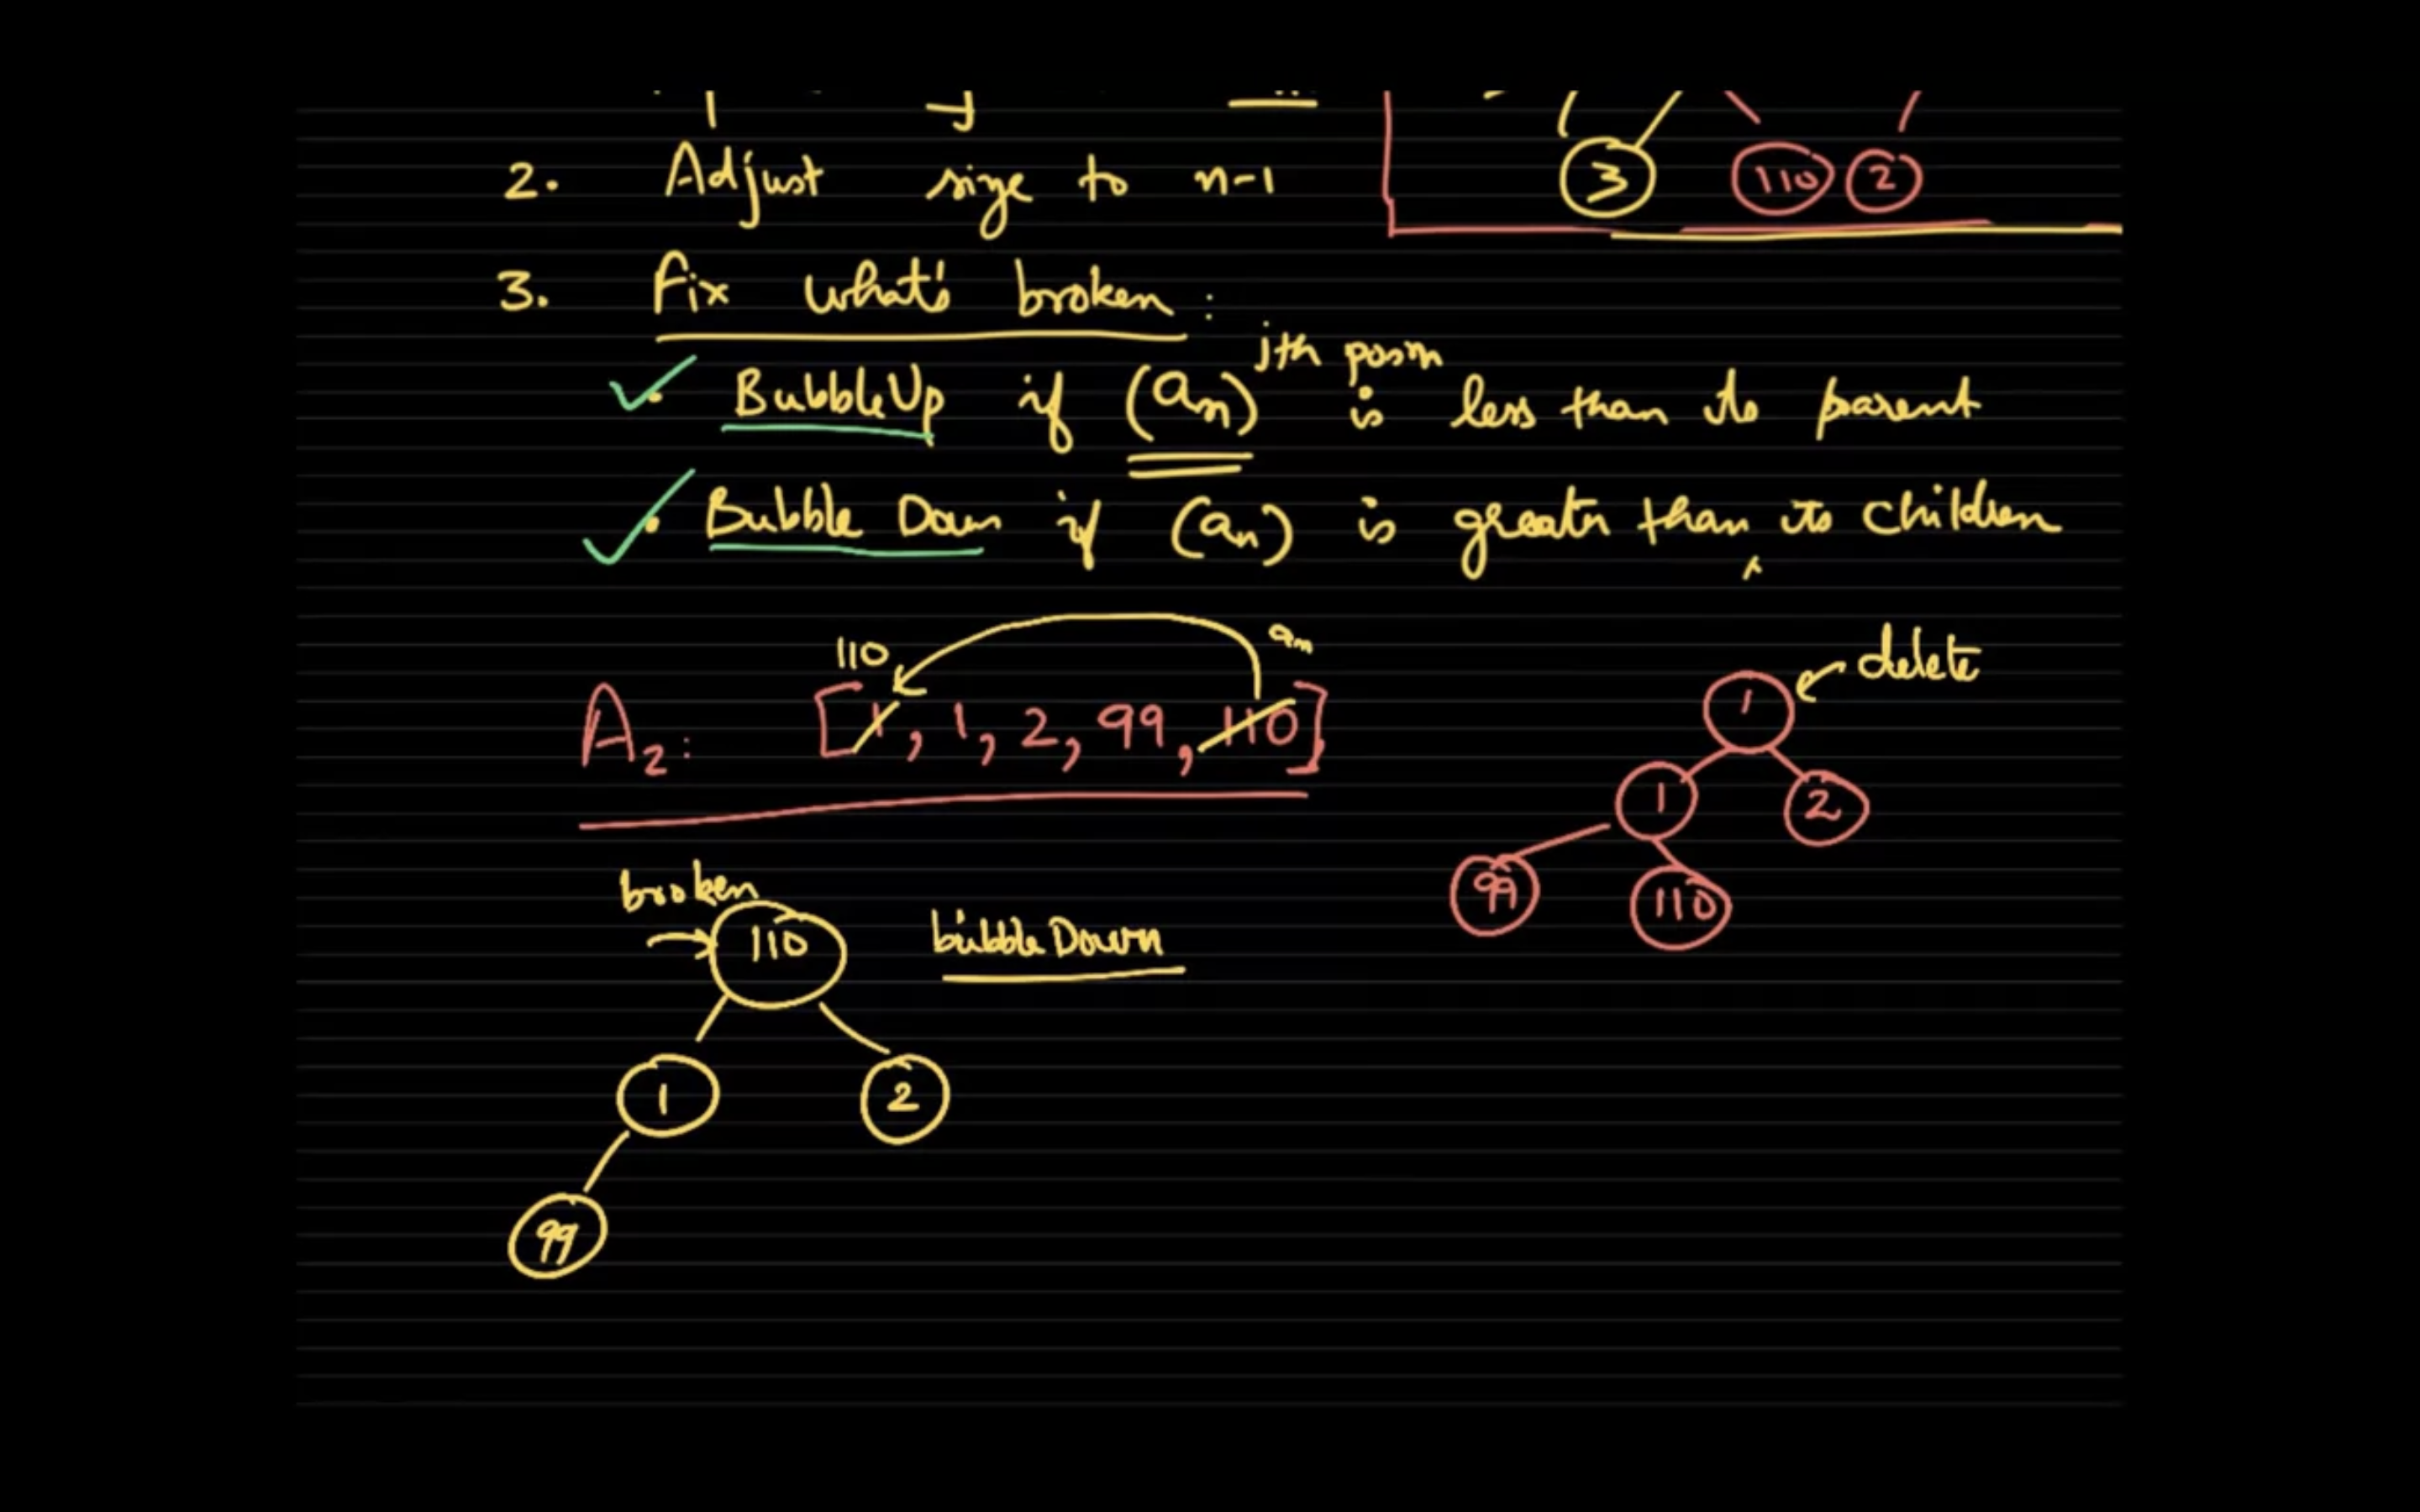 2. Adjust size to n-1
3 110 2
3. Fix what's broken :
jth posn
• BubbleUp if (an) is less than its parent
• Bubble Down if (an) is greater than its children
110 an
A2: [1, 1, 2, 99, 110]
delete
1
1 2
99 110
broken
110 bubbleDown
1 2
99